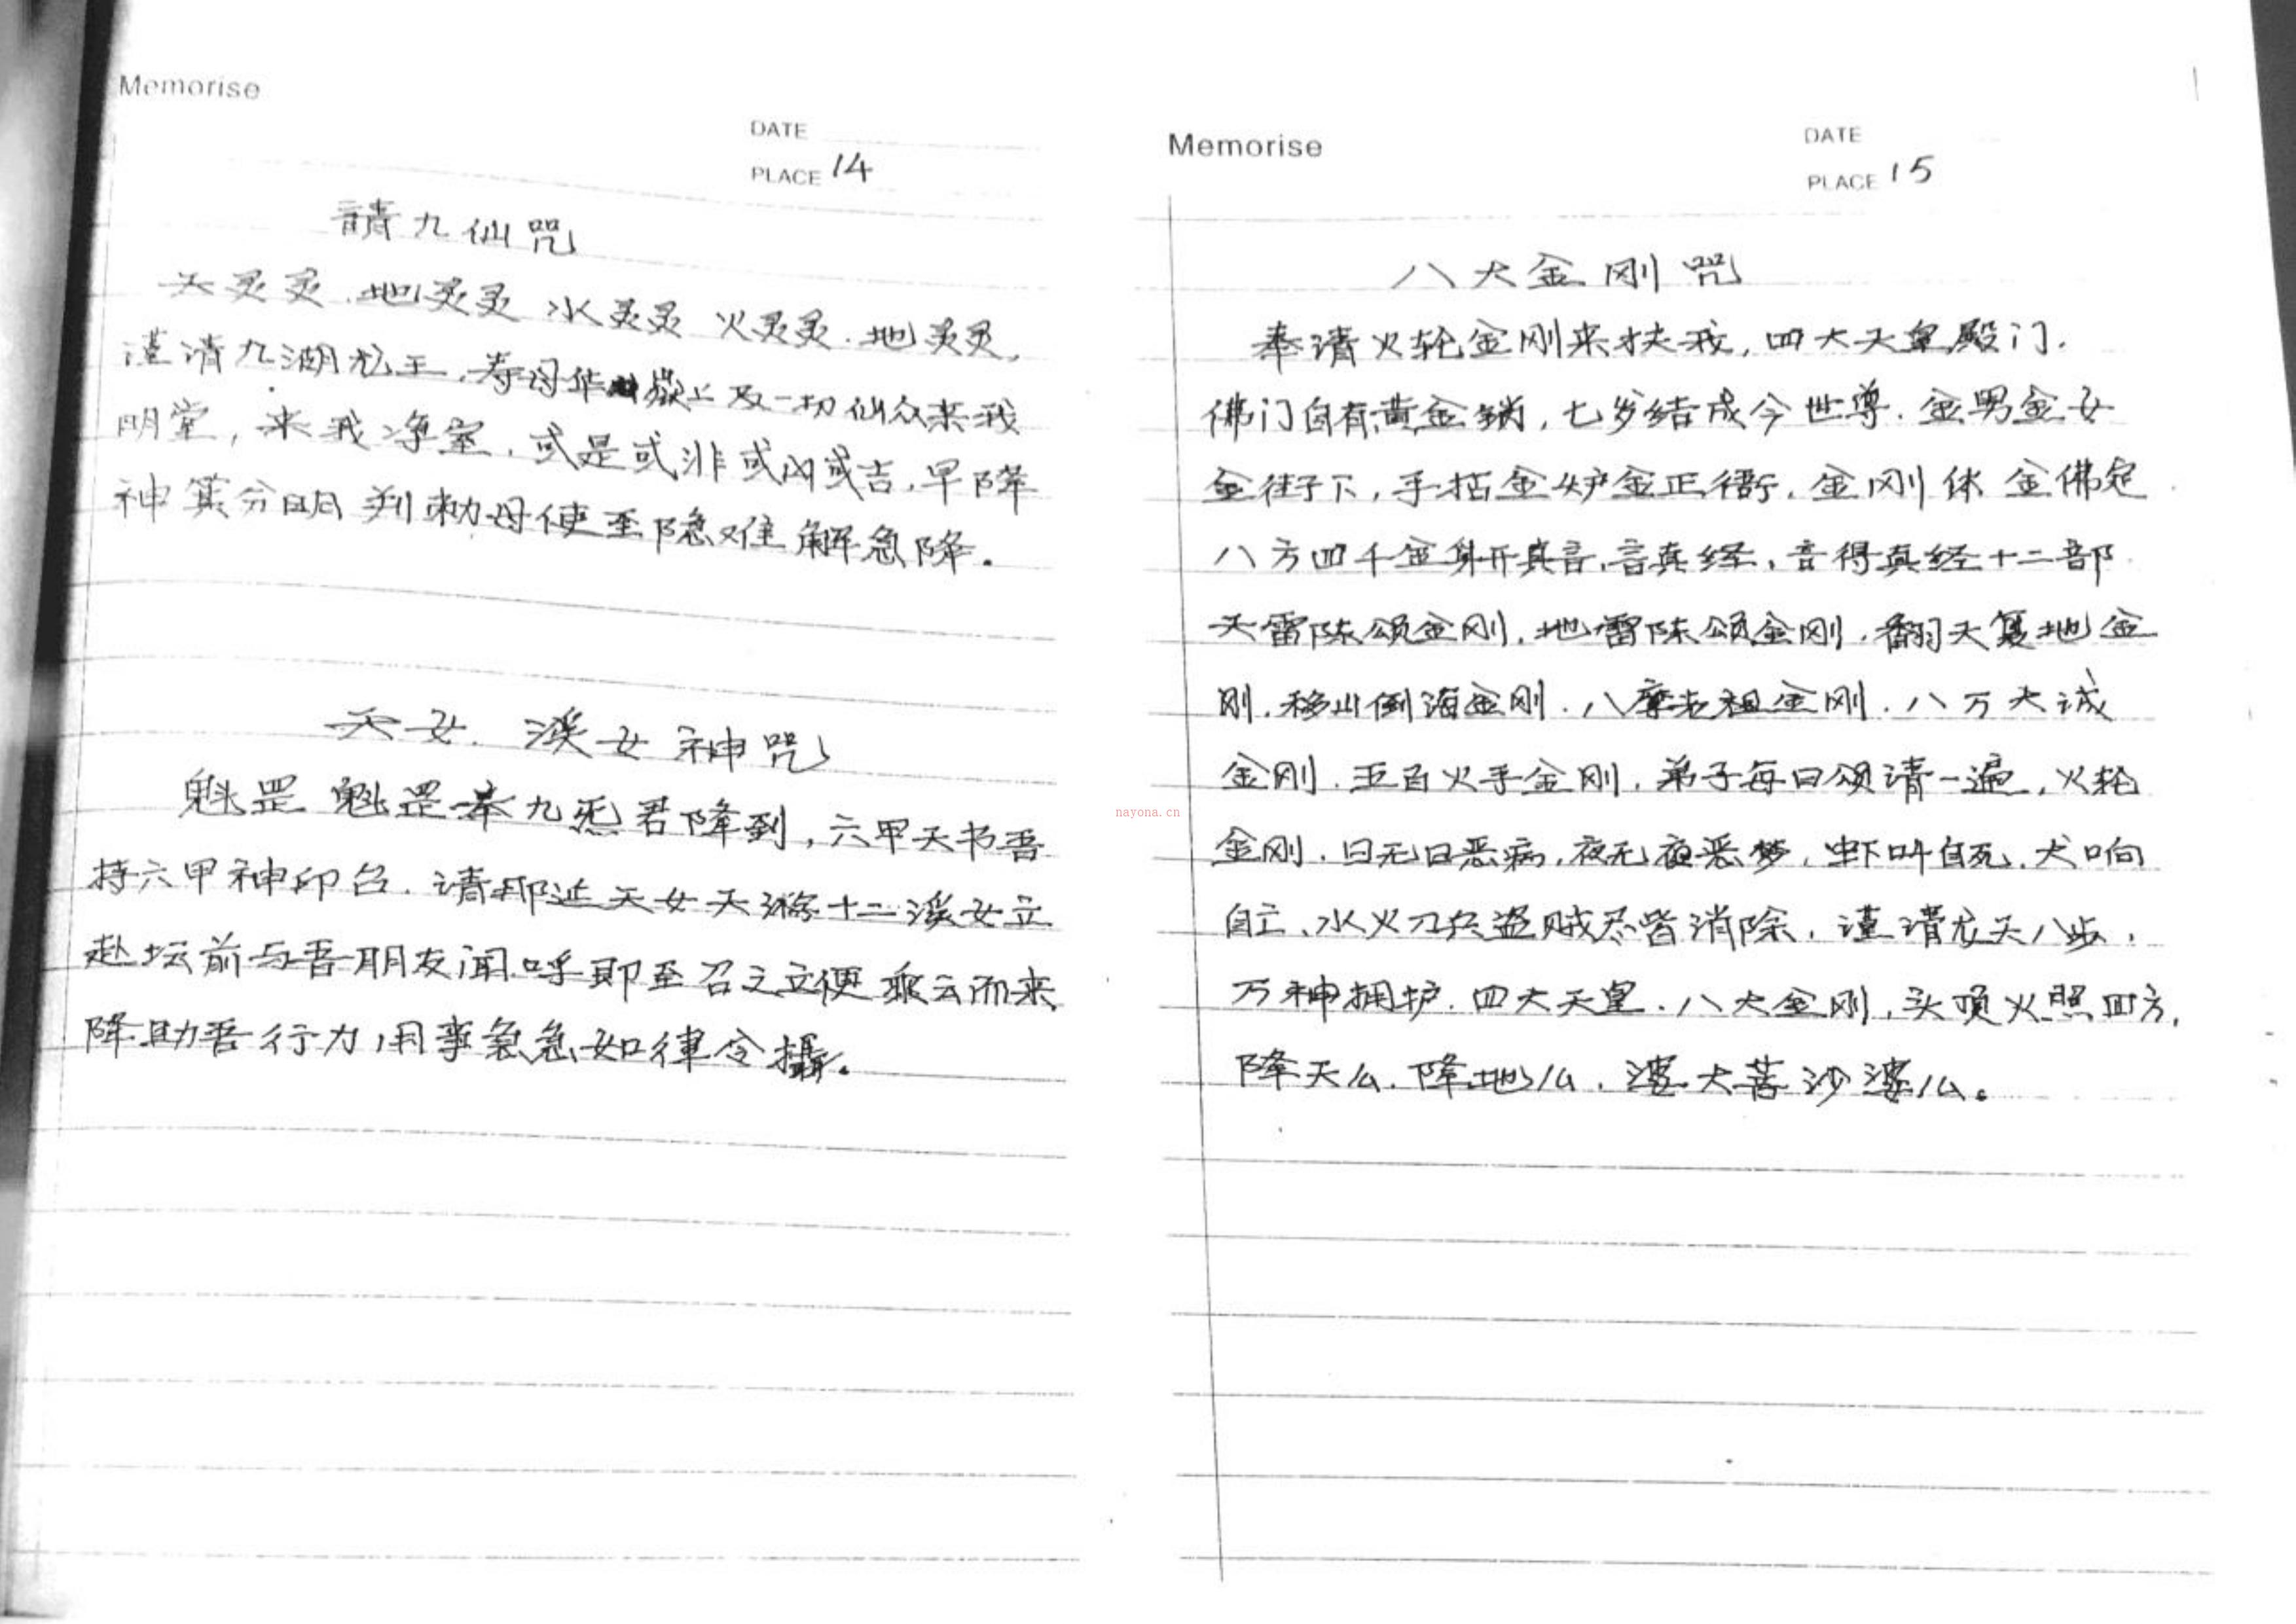 Memorise
DATE
PLACE 14
請九仙咒
天灵灵.地灵灵 水灵灵 火灵灵.地灵灵,
谨请九湖龙王.寿母华 上及一切仙众来我
明堂,来我净室.或是或非或凶或吉.早降
神箕分明判 母使至隐难解急降.
天女.溪女神咒
魁罡魁罡奉九炁君降到,六甲天书吾
持六甲神印台.请那延天女天游十二溪女立
赴坛前与吾朋友闻呼即至召之立便乘云而来
降助吾行力用事急急如律令攝.
Memorise
DATE
PLACE 15
八大金刚咒
奉请火轮金刚来扶我,四大天皇殿门.
佛门自有黄金锁,七岁结成今世尊.金男金女
金 下,手 金炉金正 .金刚体 金佛定
八方四千金身开真言.言真经,言得真经十二部
天雷陈颂金刚.地雷陈颂金刚.翻天复地金
刚.移山倒海金刚.八摩老祖金刚.八万大诚
金刚.五百火手金刚.弟子每日颂请一遍,火轮
金刚.日无日恶病,夜无夜恶梦, 叫自死.犬响
自亡、水火刀兵盗贼尽皆消除.谨请龙天八步,
万神拥护.四大天皇.八大金刚,头顶火照四方,
降天么.降地么.婆大菩沙婆么。
nayona.cn